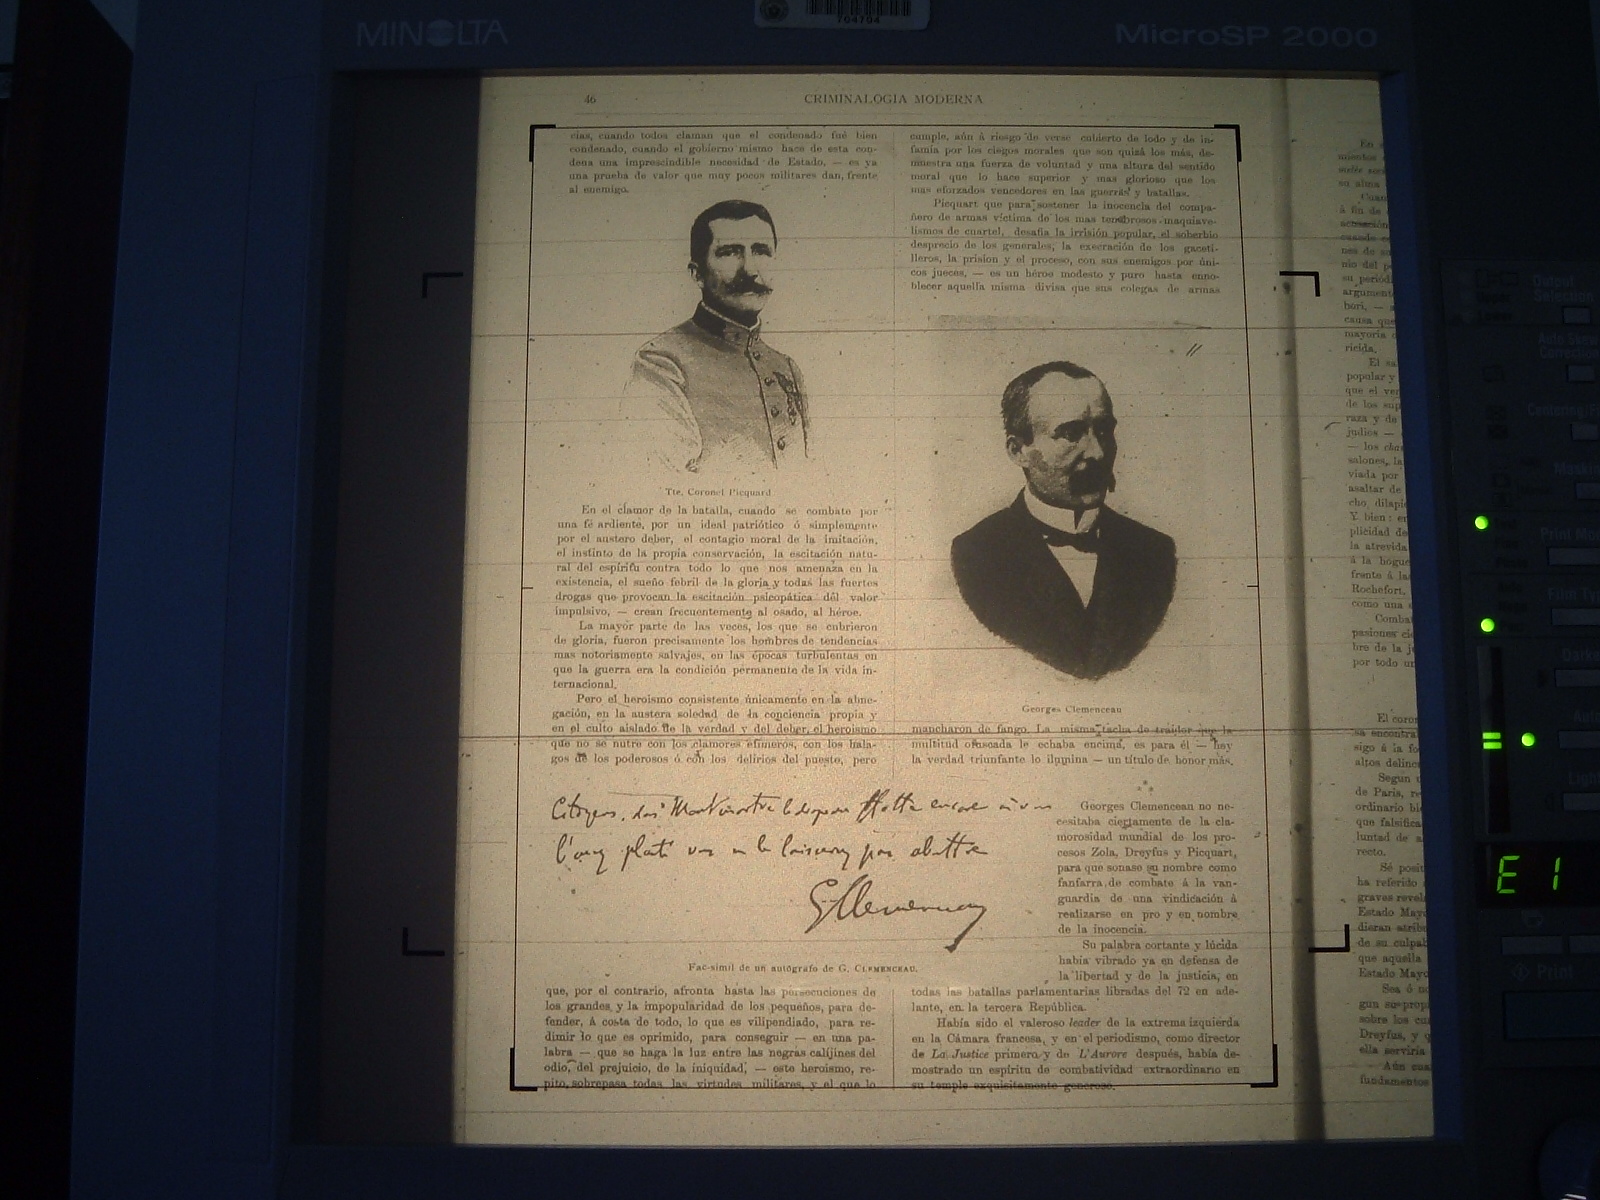 MINOLTA
704704
MicroSP 2000
46
CRIMINALOGIA MODERNA
cias, cuando todos claman que el condenado fué bien
condenado, cuando el gobierno mismo hace de esta con-
dena una imprescindible necesidad de Estado, — es ya
una prueba de valor que muy pocos militares dan, frente
al enemigo.
Tte. Coronel Picquard
En el clamor de la batalla, cuando se combate por
una fé ardiente, por un ideal patriótico ó simplemente
por el austero deber, el contagio moral de la imitación,
el instinto de la propia conservación, la escitación natu-
ral del espíritu contra todo lo que nos amenaza en la
existencia, el sueño febril de la gloria y todas las fuertes
drogas que provocan la escitación psicopática del valor
impulsivo, — crean frecuentemente al osado, al héroe.
La mayor parte de las veces, los que se cubrieron
de gloria, fueron precisamente los hombres de tendencias
mas notoriamente salvajes, en las épocas turbulentas en
que la guerra era la condición permanente de la vida in-
ternacional.
Pero el heroismo consistente únicamente en la abne-
gación, en la austera soledad de la conciencia propia y
en el culto aislado de la verdad y del deber, el heroismo
que no se nutre con los clamores efimeros, con los hala-
gos de los poderosos ó con los delirios del puesto, pero
Fac-simil de un autógrafo de G. CLEMENCEAU.
que, por el contrario, afronta hasta las persecuciones de
los grandes, y la impopularidad de los pequeños, para de-
fender, á costa de todo, lo que es vilipendiado, para re-
dimir lo que es oprimido, para conseguir — en una pa-
labra — que se haga la luz entre las negras calijines del
odio, del prejuicio, de la iniquidad, — este heroismo, re-
pito, sobrepasa todas las virtudes militares, y el que lo
cumple, aún á riesgo de verse cubierto de lodo y de in-
famia por los ciegos morales que son quizá los más, de-
muestra una fuerza de voluntad y una altura del sentido
moral que lo hace superior y mas glorioso que los
mas esforzados vencedores en las guerras y batallas.
Picquart que para sostener la inocencia del compa-
ñero de armas víctima de los mas tenebrosos maquiave-
lismos de cuartel, desafía la irrisión popular, el soberbio
desprecio de los generales, la execración de los gaceti-
lleros, la prision y el proceso, con sus enemigos por úni-
cos jueces, — es un héroe modesto y puro hasta enno-
blecer aquella misma divisa que sus colegas de armas
Georges Clemenceau
mancharon de fango. La misma tacha de traidor que la
multitud ofuscada le echaba encima, es para él — hoy
la verdad triunfante lo ilumina — un título de honor más.
Georges Clemencean no ne-
cesitaba ciertamente de la cla-
morosidad mundial de los pro-
cesos Zola, Dreyfus y Picquart,
para que sonase su nombre como
fanfarra de combate á la van-
guardia de una vindicación á
realizarse en pro y en nombre
de la inocencia.
Su palabra cortante y lúcida
había vibrado ya en defensa de
la libertad y de la justicia, en
todas las batallas parlamentarias libradas del 72 en ade-
lante, en la tercera República.
Había sido el valeroso leader de la extrema izquierda
en la Cámara francesa, y en el periodismo, como director
de La Justice primero y de L'Aurore después, había de-
mostrado un espíritu de combatividad extraordinario en
su temple exquisitamente generoso.
Output
Selection
Print
E 1